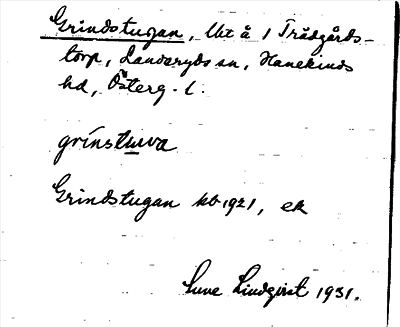 Grindstugan, Ut å 1 Trädgårds-
torp, Landeryds sn, Hanekinds
hd, Österg. l.
grínstuwa
Grindstugan kb 1921, ek
Sune Lindqvist 1931.